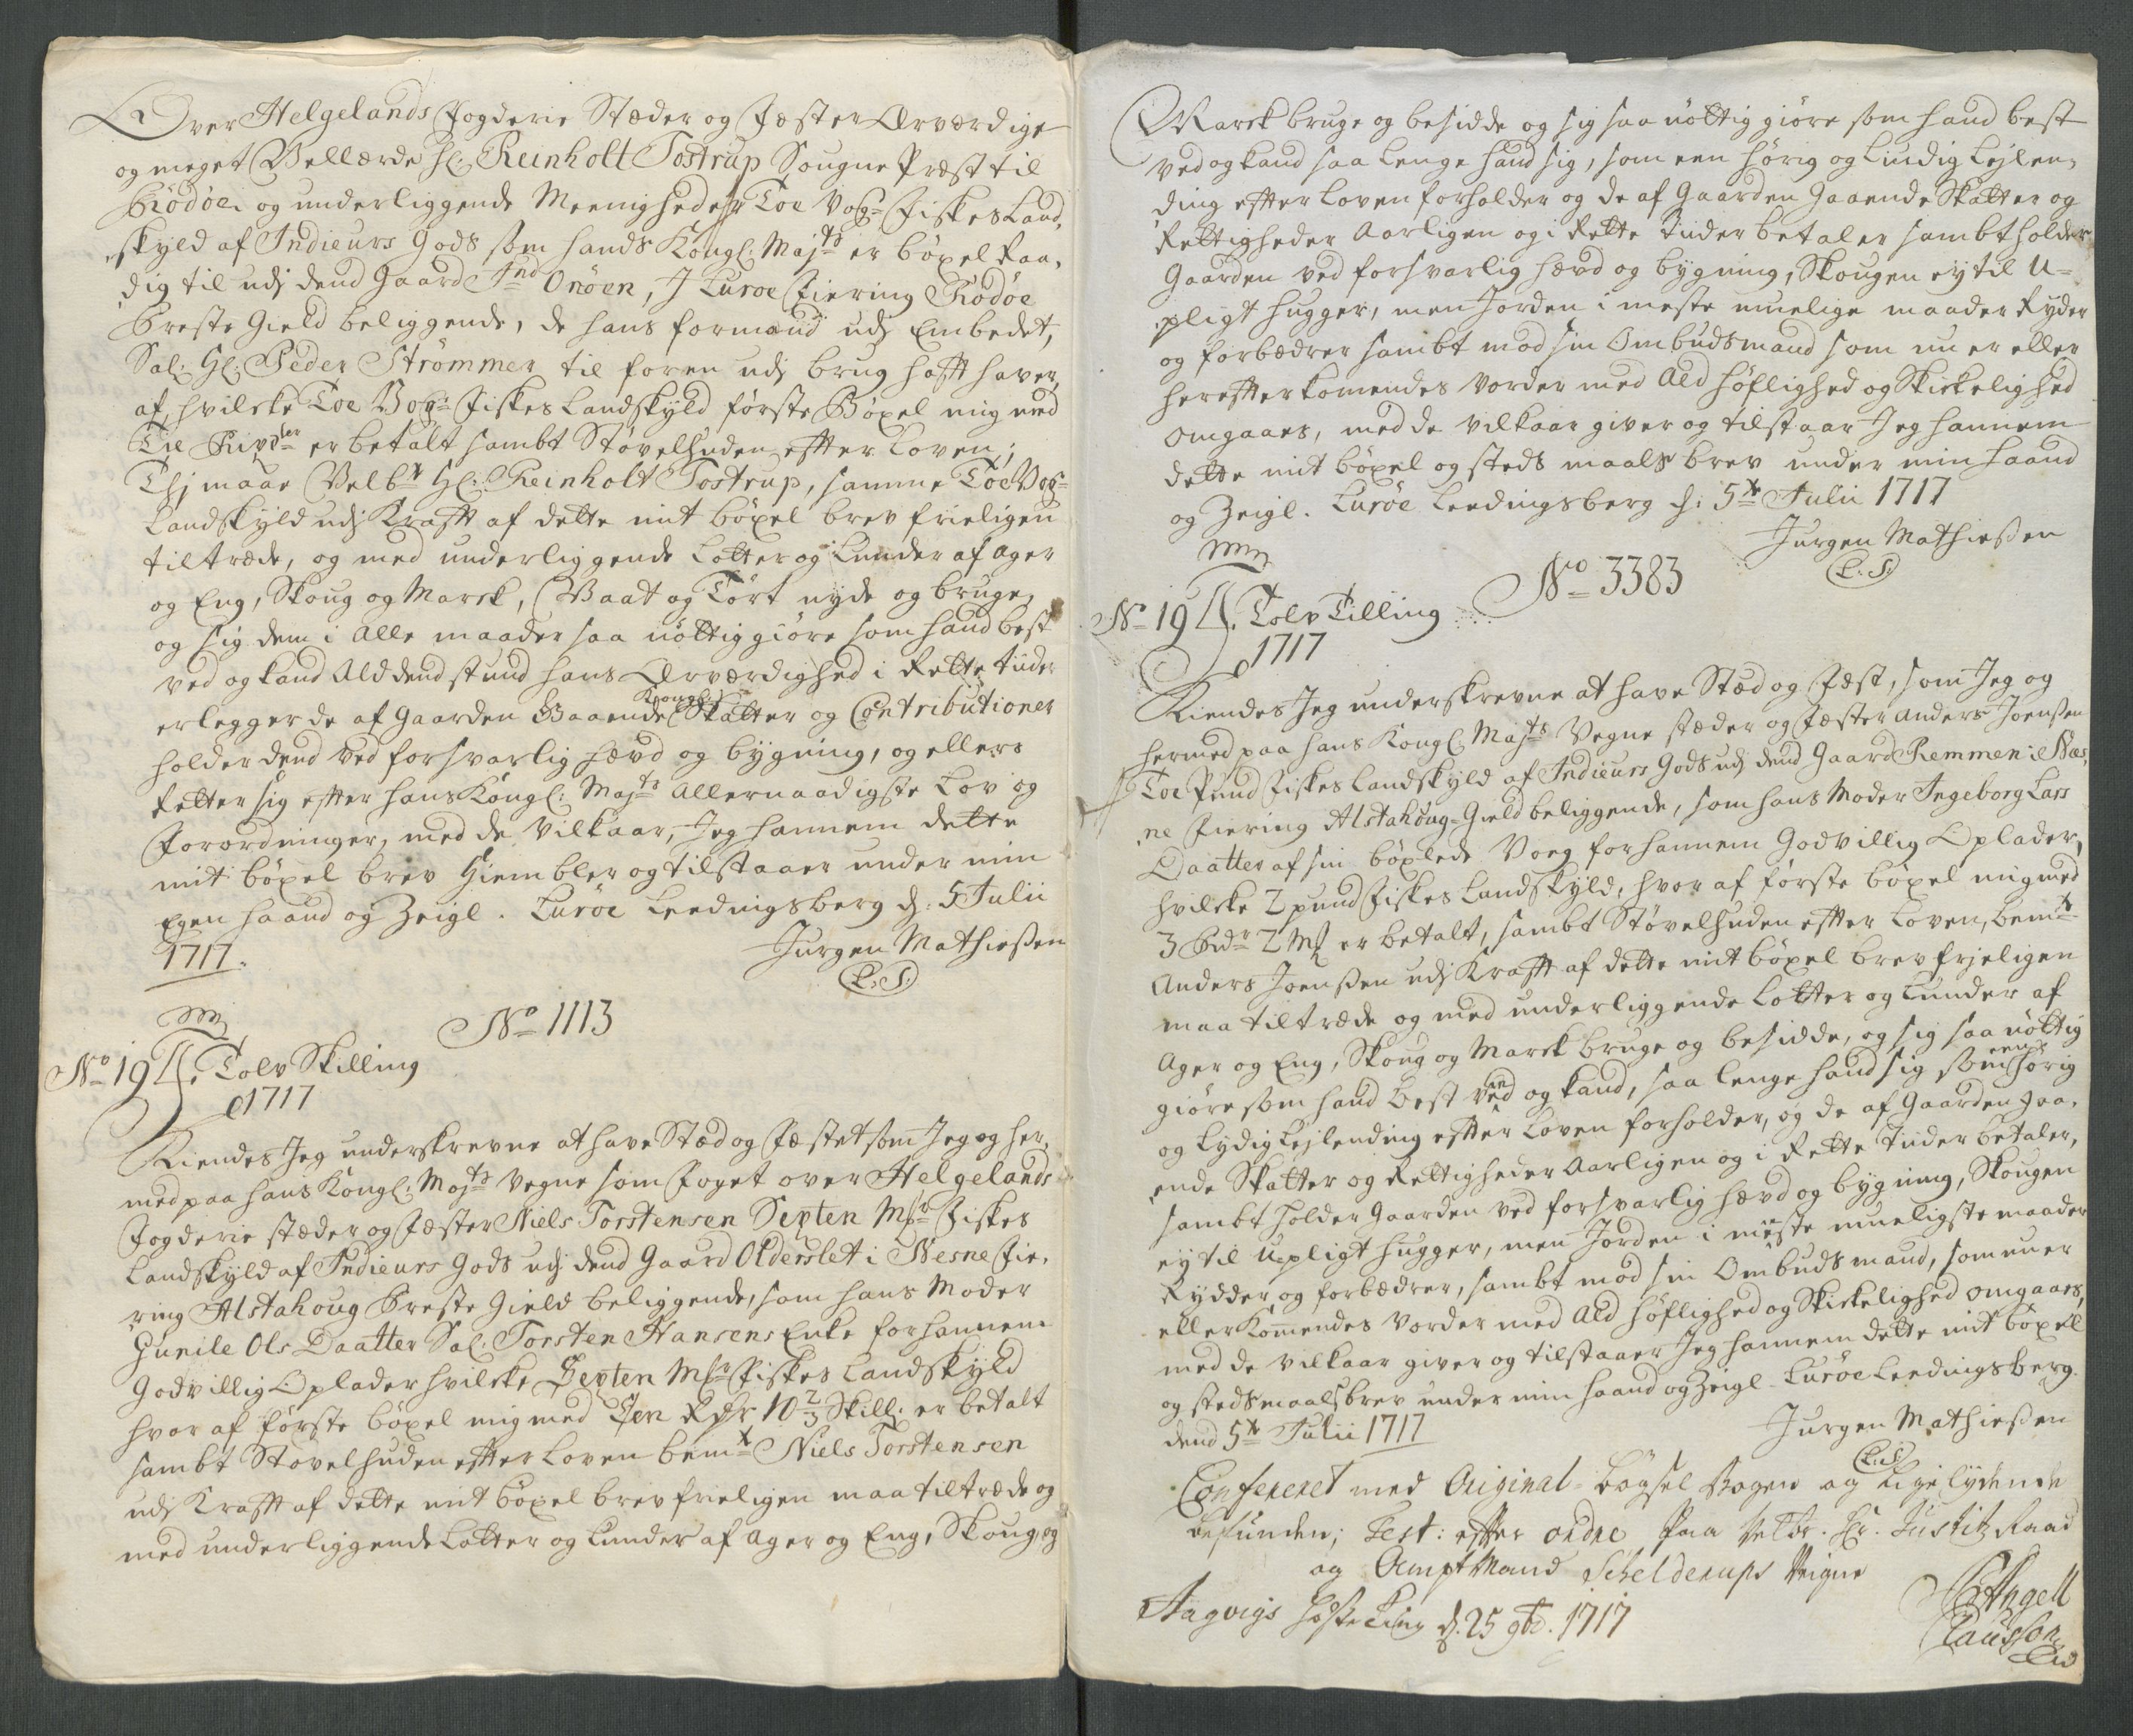 Over Helgelands Fogderie Stæder og Fæster Ærværdige
og meget Vellærde Hr: Reinholt Tostrup Sougne Præst til
Rödöe og underliggende Meenigheder Toe Vog Fiskes Land,
skyld af Indieurs Gods som hands Kongl: Mayts er böxel Raa,
dig til udj dend Gaard Ind Onöen, J Luroe Fiering Rödöe
Preste Gield beliggende, de hans formænd udj Embedet,
Sal: Hr: Peder Strömmer til foren udj brug hafft haver,
af hvilcke Toe Vog: Fiskes Landskyld förste Böxel mig med
Tie Rixdler er betalt sambt Stövelhuden effter Loven,
Thj maae Velbte Hr: Reinholt Tostrup, samme Toe Vog
Landskyld udj Krafft af dette mit böxel brev frieligen
tiltræde, og med underliggende Lotter og Lunder af ager
og Eng, Skoug og Marck, Vaat og Tört nyde og bruge,
og sig dem i Alle maader saa nöttig giöre som hand best
ved og kand Ald dend stund hans Ærværdighed i Rette tiider
erlegger de af Gaarden Gaaende Kongl: Skatter og Contributioner
holder dend ved forsvarlig hævd og bygning, og ellers
Retter sig effter hans Kongl: Mayts Allernaadigste Lov og
Forordninger, med de Vilkaar, Jeg hannem dette
mit böxel brev Hiembler og tilstaaer under min
Egen haand og Zeigl. Luröe Leedingsberg d: 5 Julii
1717.
Jurgen Mathiessen
(L:S:)
No 1113
No 19 Tolv Skilling
1717
Kiendes Jeg underskrevne at have Stæd og Fæstet som Jeg og her,
med paa hans Kongl: Mayts Vegne som Foget over Helgelands
Fogderie stæder og Fæster Niels Torstensen Septen Mkr Fiskes
Landskyld af Indieurs Gods udj dend Gaard Olderslet i Nesne Fie,
ring Alstahoug Preste Gield beliggende, som hans Moder
Gunile Ols Daatter Sal: Torsten Hansens Enke for hannem
Godvillig Oplader hvilcke Septen Mkr Fiskes Landskyld
hvor af förste böxel mig med Een Rdr 10 2/3 Skill: er betalt
sambt Stövelhuden effter Loven bemte Niels Torstensen
udj Krafft af dette mit böxel brev frieligen maa tiltræde og
med underliggende Lotter og Lunder af ager og Eng, Skoug og
Marck bruge og besidde og sig saa nöttig giöre som hand best
ved og kand saa lenge hand sig, som een hörig og Lindig Lejlen,
ding effter Loven forholder og de af Gaarden Gaaende Skatter og
Rettigheder Aarligen og i Rette Tiider betaler sambt holder
Gaarden ved forsvarlig hævd og bygning, Skougen ey til U=
pligt hugger, men Jorden i meste muelige maader Rydder
og forbædrer sambt mod sin Ombudsmand som nu er eller
hereffter komendes vorder med Ald höflighed og Skickelighed
omgaaes, med de vilkaar giver og tilstaar Jeg hannem
dette mit böxel og steds maals brev under min haand
og Zeigl. Luröe Leedingsberg d: 5te Julii 1717
Jurgen Mathiessen
(L:S:)
No 3383
No 19 Tolv Skilling
1717
Kiendes Jeg underskrevne at have Stæd og Fæst, som Jeg og
hermed paa hans Kongl: Mayts Vegne stæder og Fæster Anders Joenssen
Toe Pund Fiskes Landskyld af Indieurs Gods udj dend Gaard Remmen i Næs,
ne Fiering Alstahoug-Gield beliggende, som hans Moder Ingeborg Lars
Daatter af sin böxlede Voeg for hannem Godvillig Oplader,
hvilcke 2 pund Fiskes Landskyld, hvor af förste böxel mig med
3 Rdr 2 Mk er betalt, sambt Stövelhuden effter Loven, bemte
Anders Joenssen udj Krafft af dette mit böxel brev frieligen
maa tiltræde og med underliggende Lotter og Lunder af
Ager og Eng, Skoug og Marck bruge og besidde, og sig saa nöttig
giöre som hand best ved og kand, saa lenge hand sig som een hörig
og Lydig Lejlending effter Loven forholder, og de af Gaarden gaa,
ende Skatter og Rettigheder Aarligen og i Rette Tiider betaler,
sambt holder Gaarden ved forsvarlig hævd og bygning, Skougen
ey til Upligt hugger, men Jorden i meste mueligste maader
Rydder og forbædrer, sambt mod sin Ombudsmand, som nu er
eller Kommendes vorder med Ald höflighed og Skickelighed omgaaes,
med de vilkaar giver og tilstaaer Jeg hannem dette mit böxel
og stedsmaals brev under min haand og Zeigl. Luröe Leedingsberg.
dend 5te Julii 1717
Jurgen Mathiessen
(L:S)
Confereret med Original-bögsel Bogen og Ligelydende
befunden; Test: effter ordre paa Velbr. Hr. Justitz Raad
og Amptmand Schelderups Veigne
Aagvigs Höste Ting d. 25 9br. 1717
Angell
Claussön